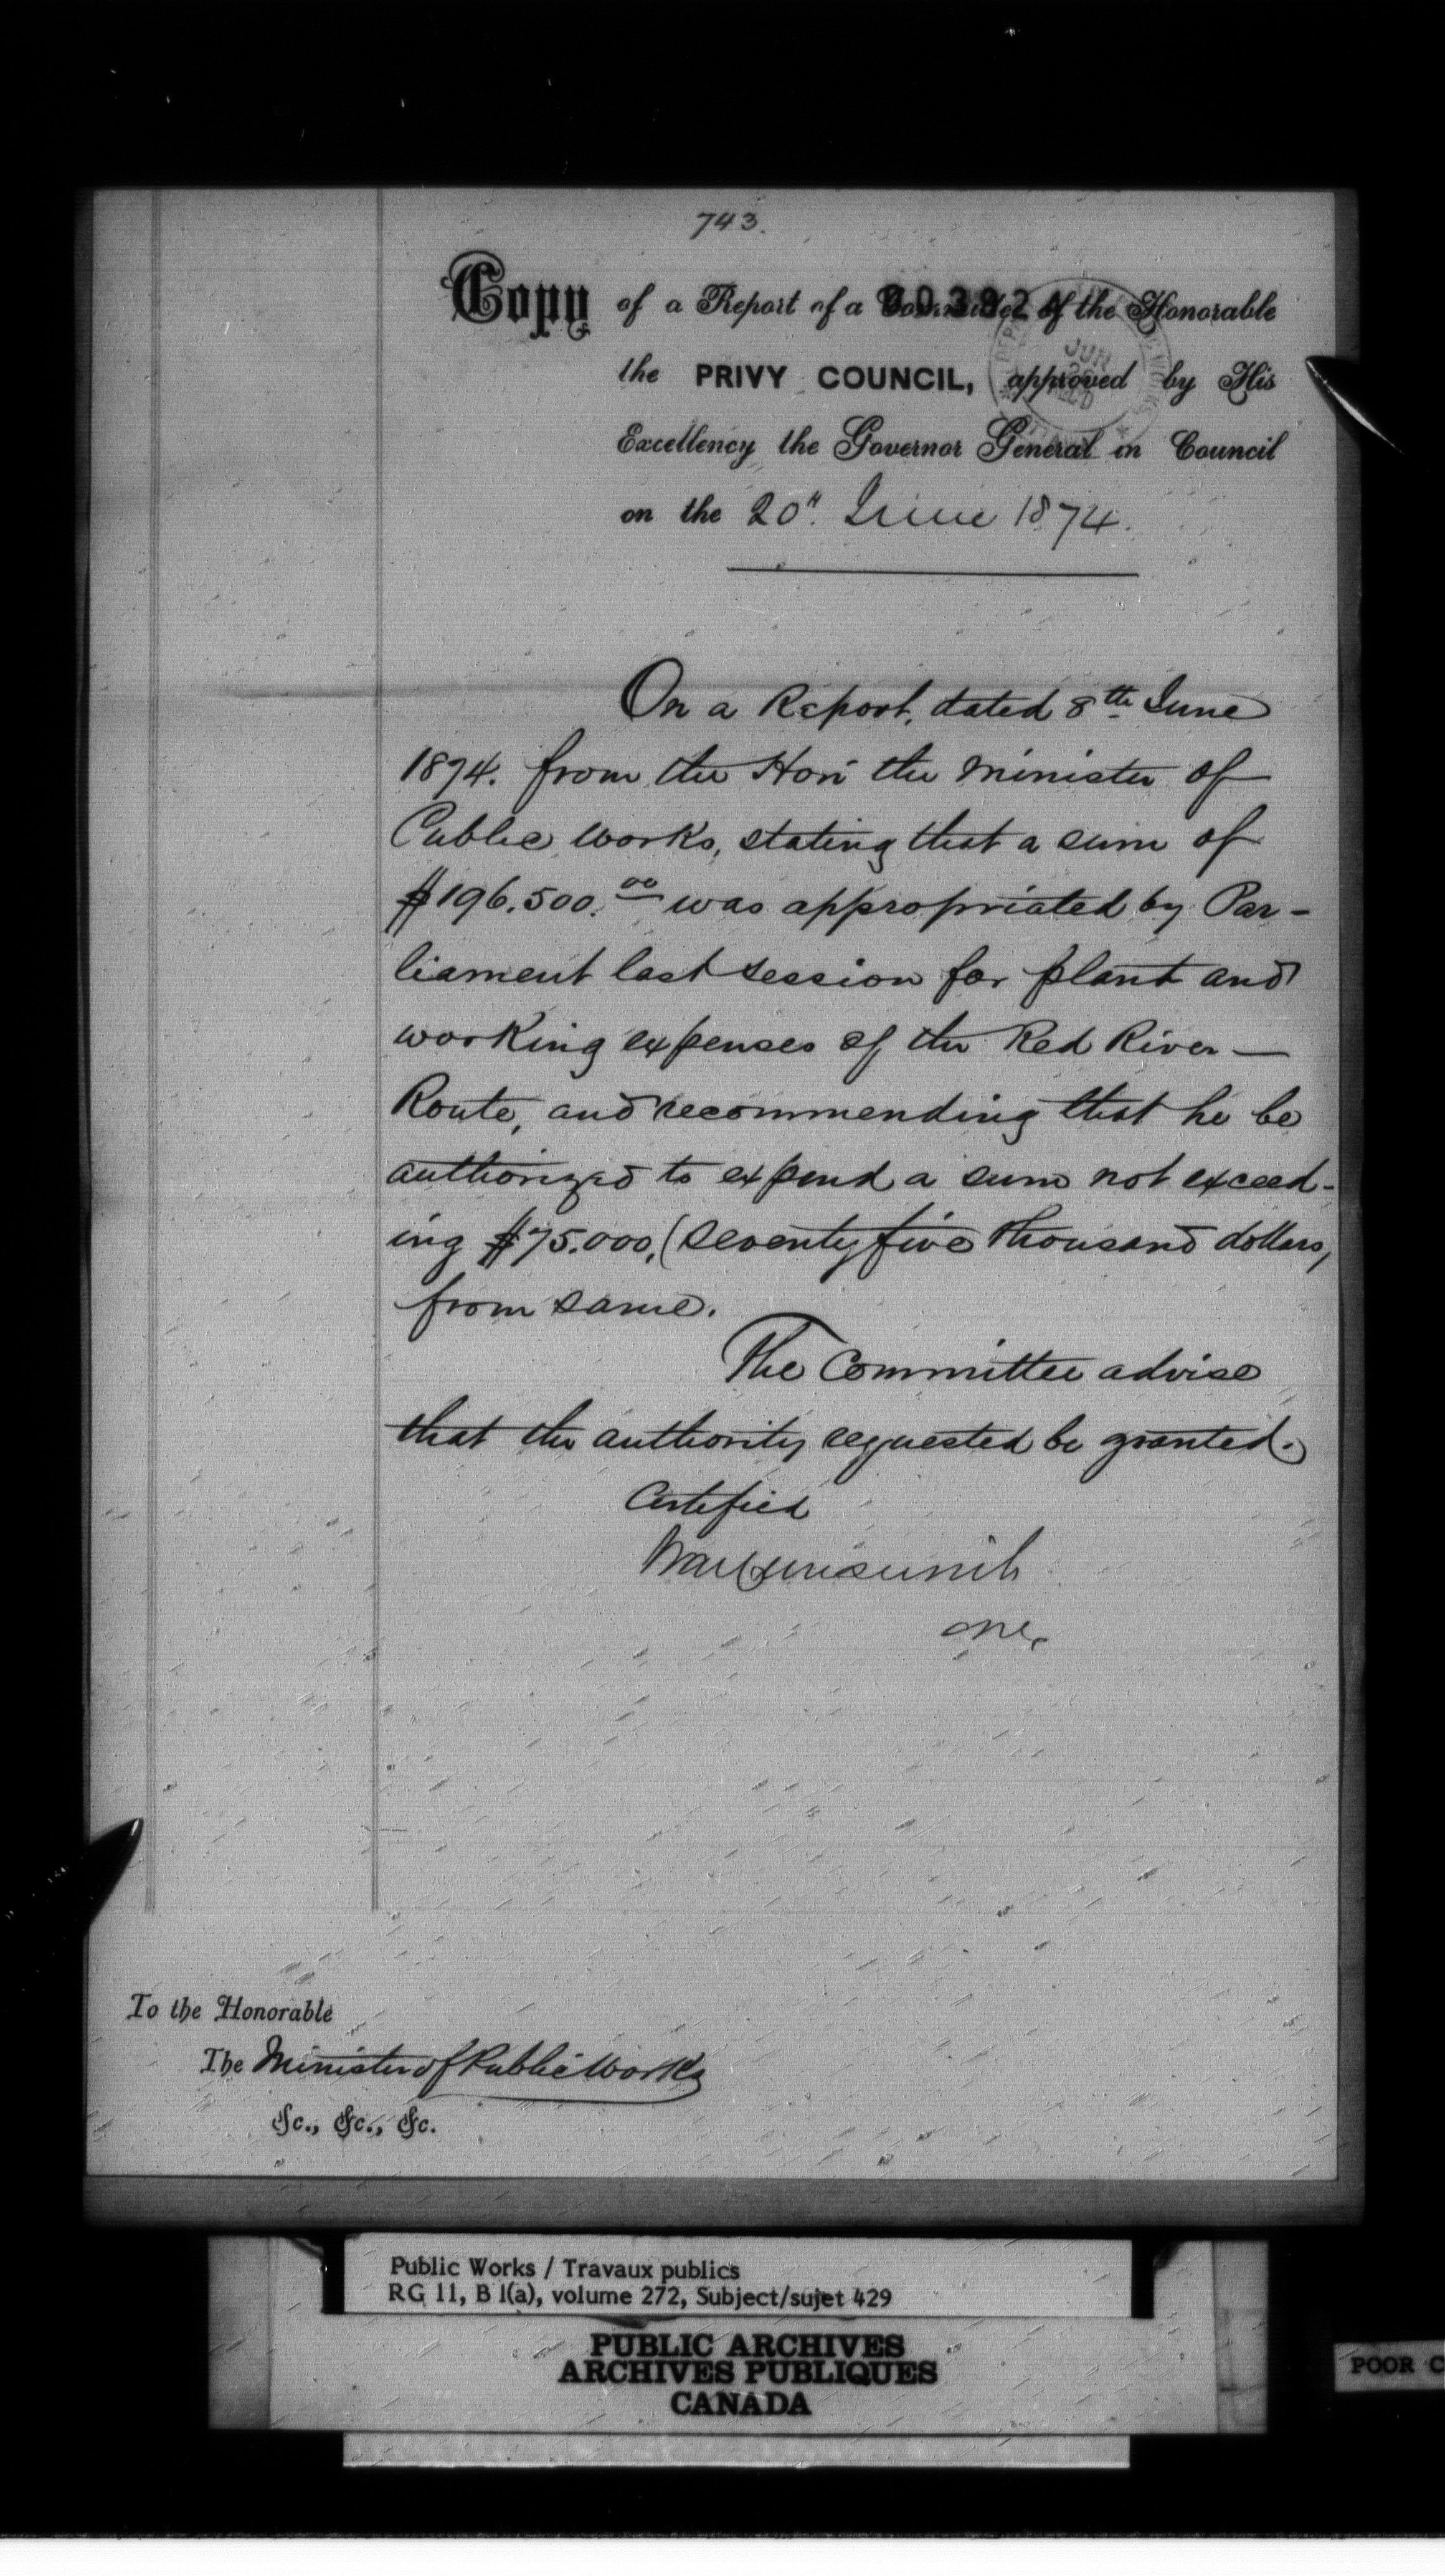 743.
Copy of a Report of a Committee of the Honorable
the PRIVY COUNCIL, approved by His
Excellency the Governor General in Council
on the 20th. June 1874.
JUN
On a Report, dated 8th June
1874. from the Hon the Minister of
Public Works, stating that a sum of
$196.500.00 was appropriated by Par-
liament last session for plant and
working expenses of the Red River —
Route, and recommending that he be
authorized to expend a sum not exceed-
ing $75.000, (seventy five thousand dollars,
from same.
The Committee advise
that the authority requested be granted.
Certified
To the Honorable
The Minister of Public Works
&c., &c., &c.
Public Works / Travaux publics
RG 11, B 1(a), volume 272, Subject/sujet 429
PUBLIC ARCHIVES
ARCHIVES PUBLIQUES
CANADA
POOR C